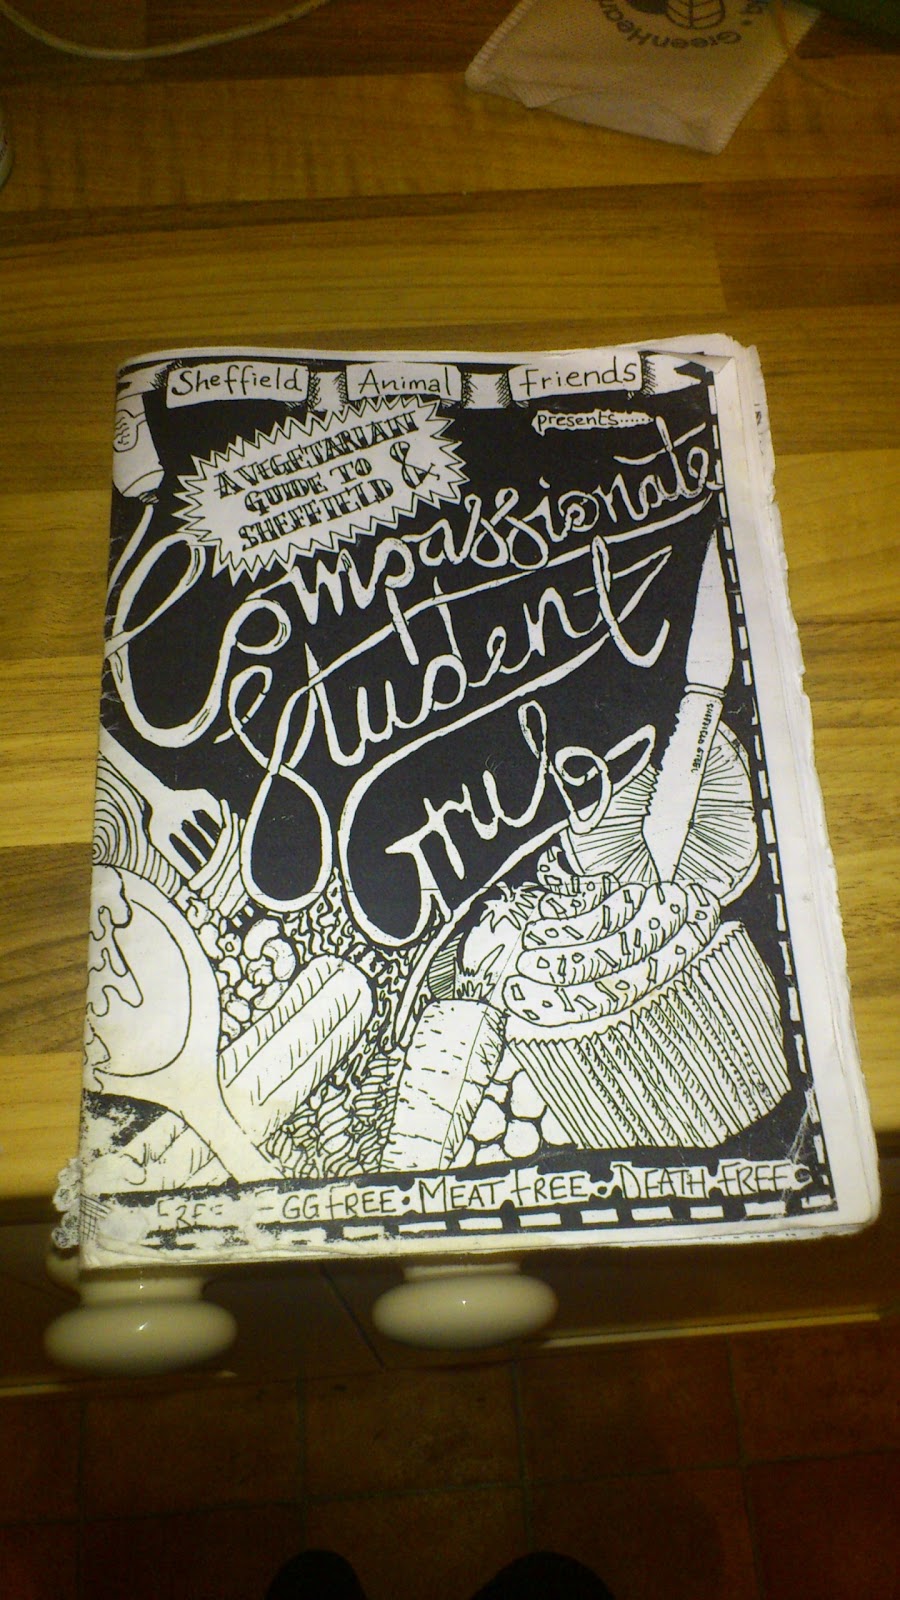 GreenHear
Sheffield Animal Friends
presents.....
A VEGETARIAN
GUIDE TO
SHEFFIELD &
Compassionate
Student
Grub
SHEFFIELD STEEL
GG FREE • MEAT FREE • DEATH FREE •